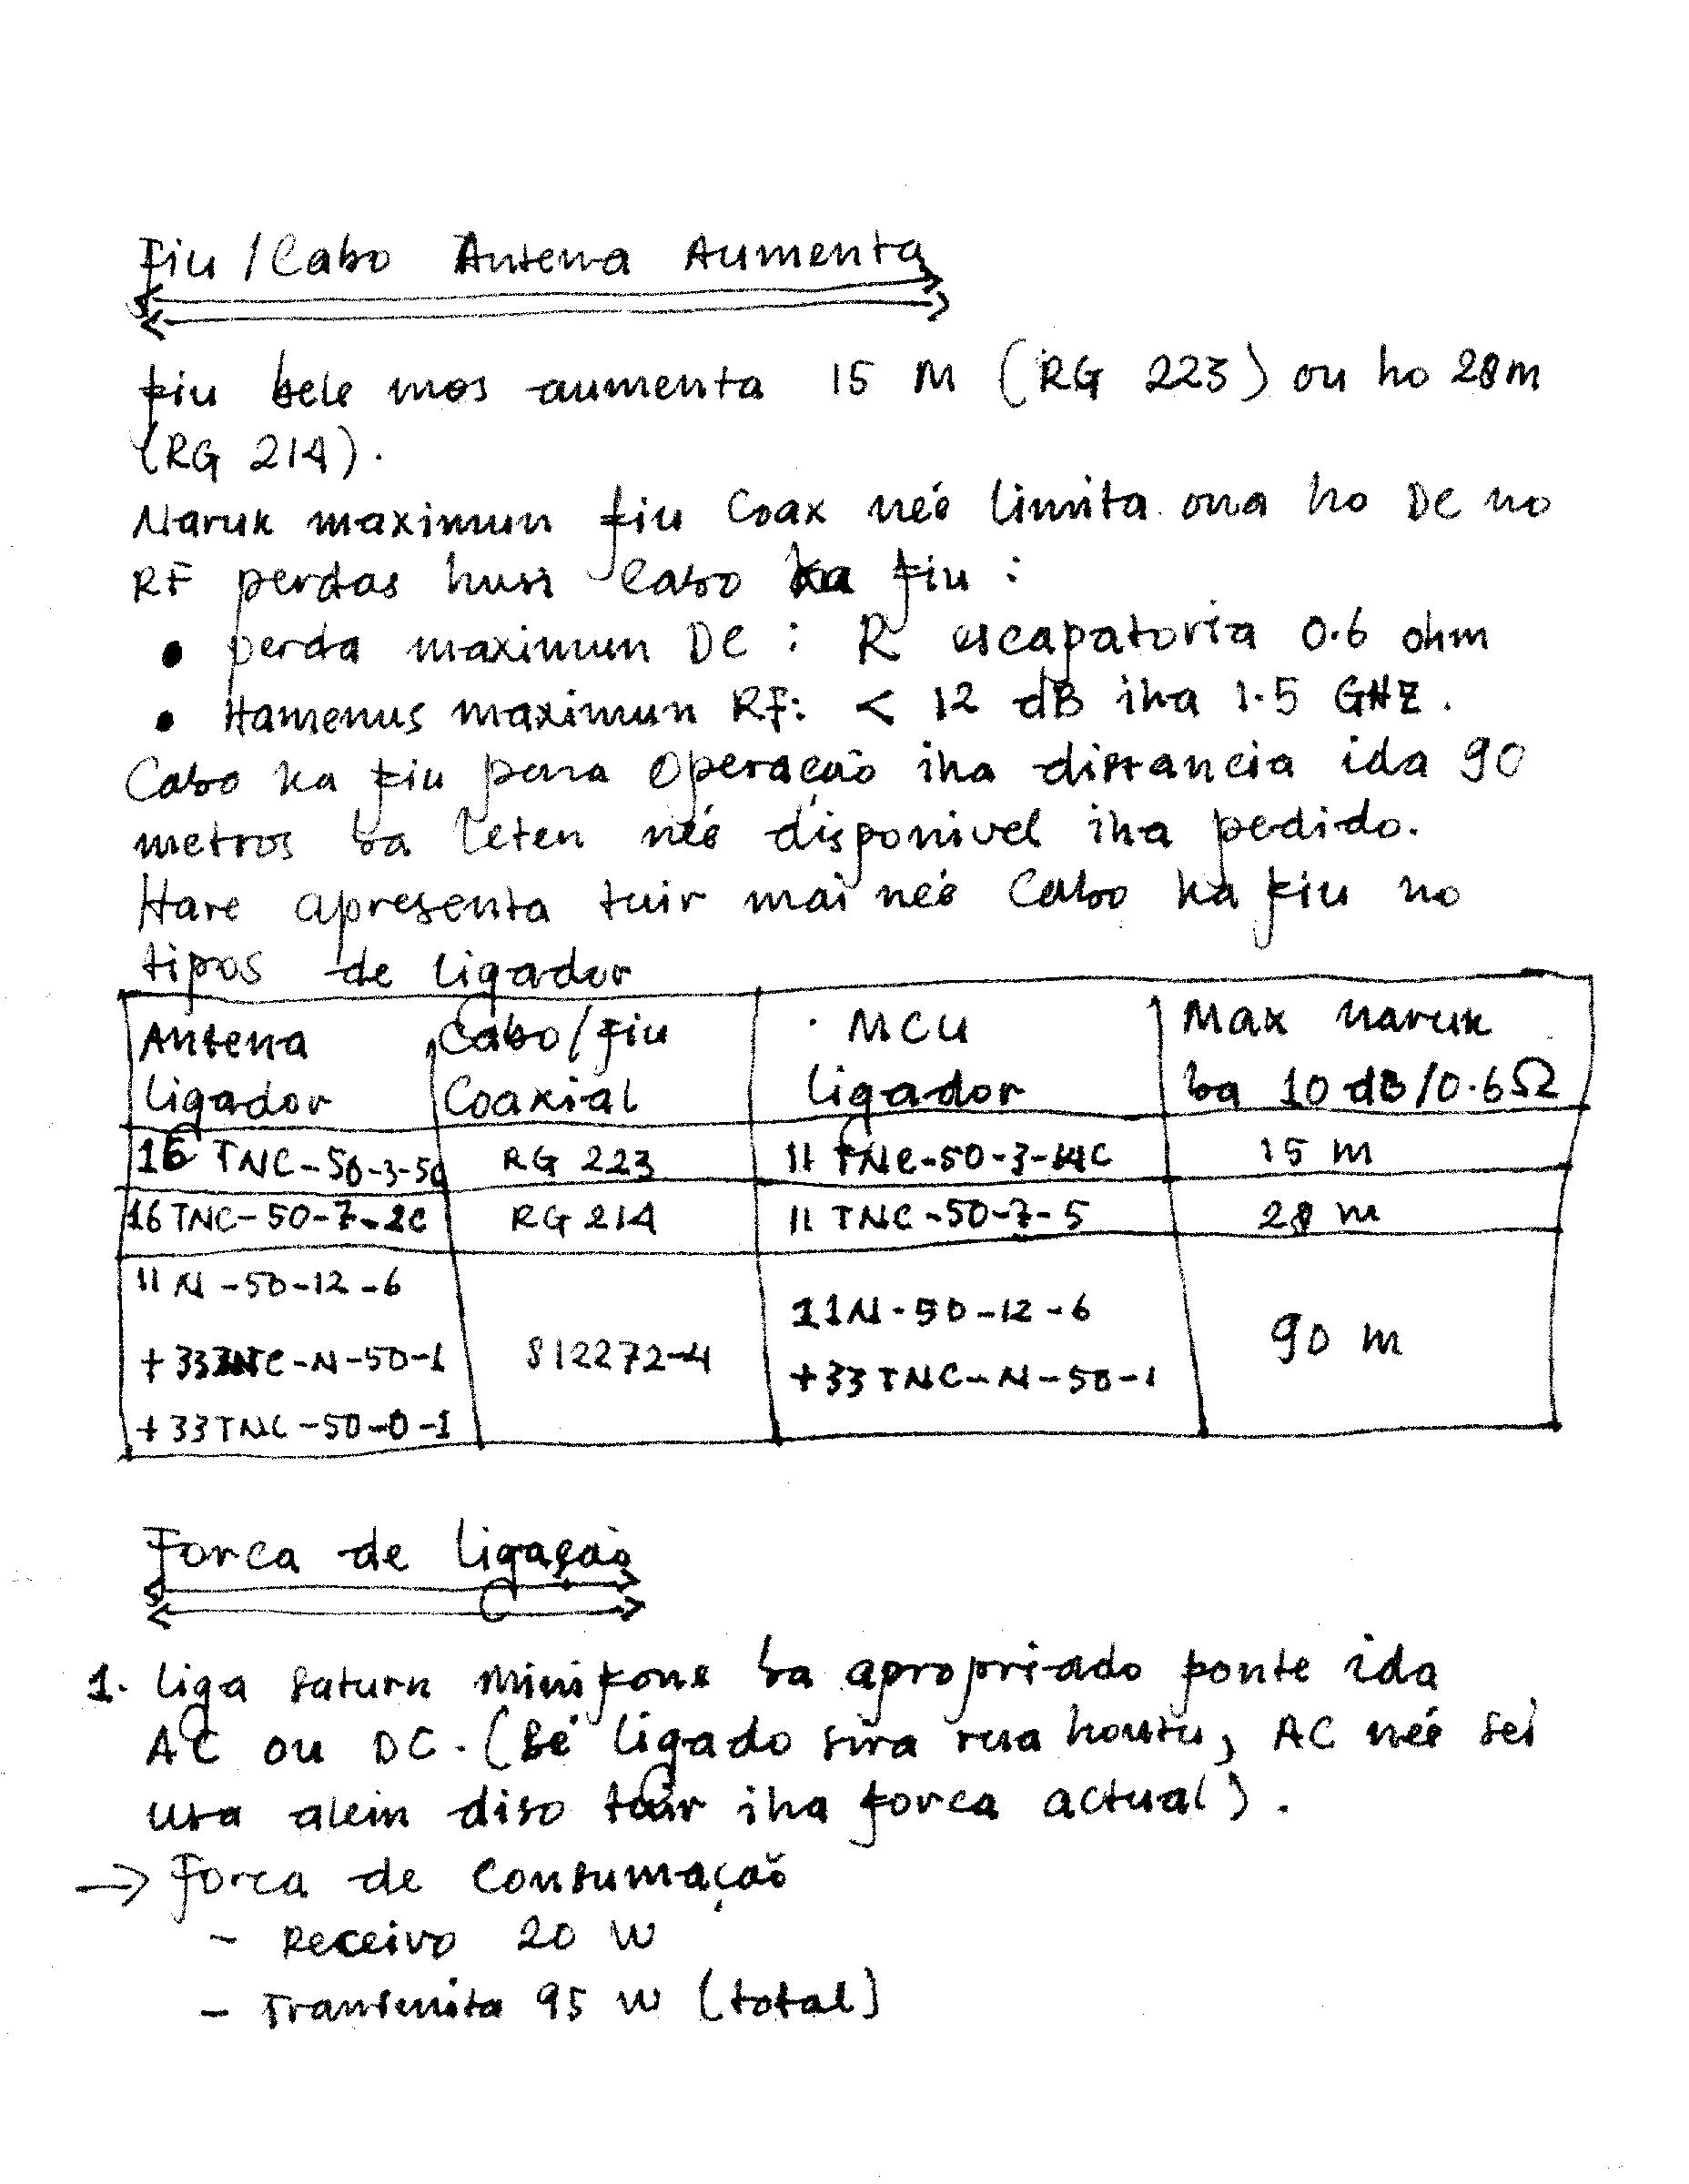 Fiu / Cabo Antena Aumenta
fiu bele mos aumenta 15 M (RG 223) ou ho 28m
(RG 214).
Naruk maximun fiu Coax neé limita ona ho DC no
RF perdas husi Cabo ka fiu :
• perda maximun DC : R escapatoria 0.6 ohm
• Hamenus maximun RF: < 12 dB iha 1.5 GHZ.
Cabo ka fiu para Operação iha distancia ida 90
metros ba leten neé disponivel iha pedido.
Hare apresenta tuir mai neé Cabo ka fiu no
tipos de ligador
Antena Cabo/fiu MCU Max naruk
ligador Coaxial ligador ba 10 dB/0.6Ω
16 TNC-50-3-50 RG 223 11 TNC-50-3-14C 15 m
16 TNC-50-7-2C RG 214 11 TNC-50-7-5 28 m
11 N-50-12-6
11N-50-12-6
+33TNC-N-50-1 S12272-4 90 m
+33TNC-N-50-1
+33TNC-50-0-1
Forca de ligação
1. liga Saturn Minifone ba apropriado ponte ida
AC ou DC. (Sé ligado sira rua hontu, AC neé sei
usa alein diso tuir iha forca actual).
→ Forca de Consumação
- Receivo 20 W
- Transmita 95 W (total)